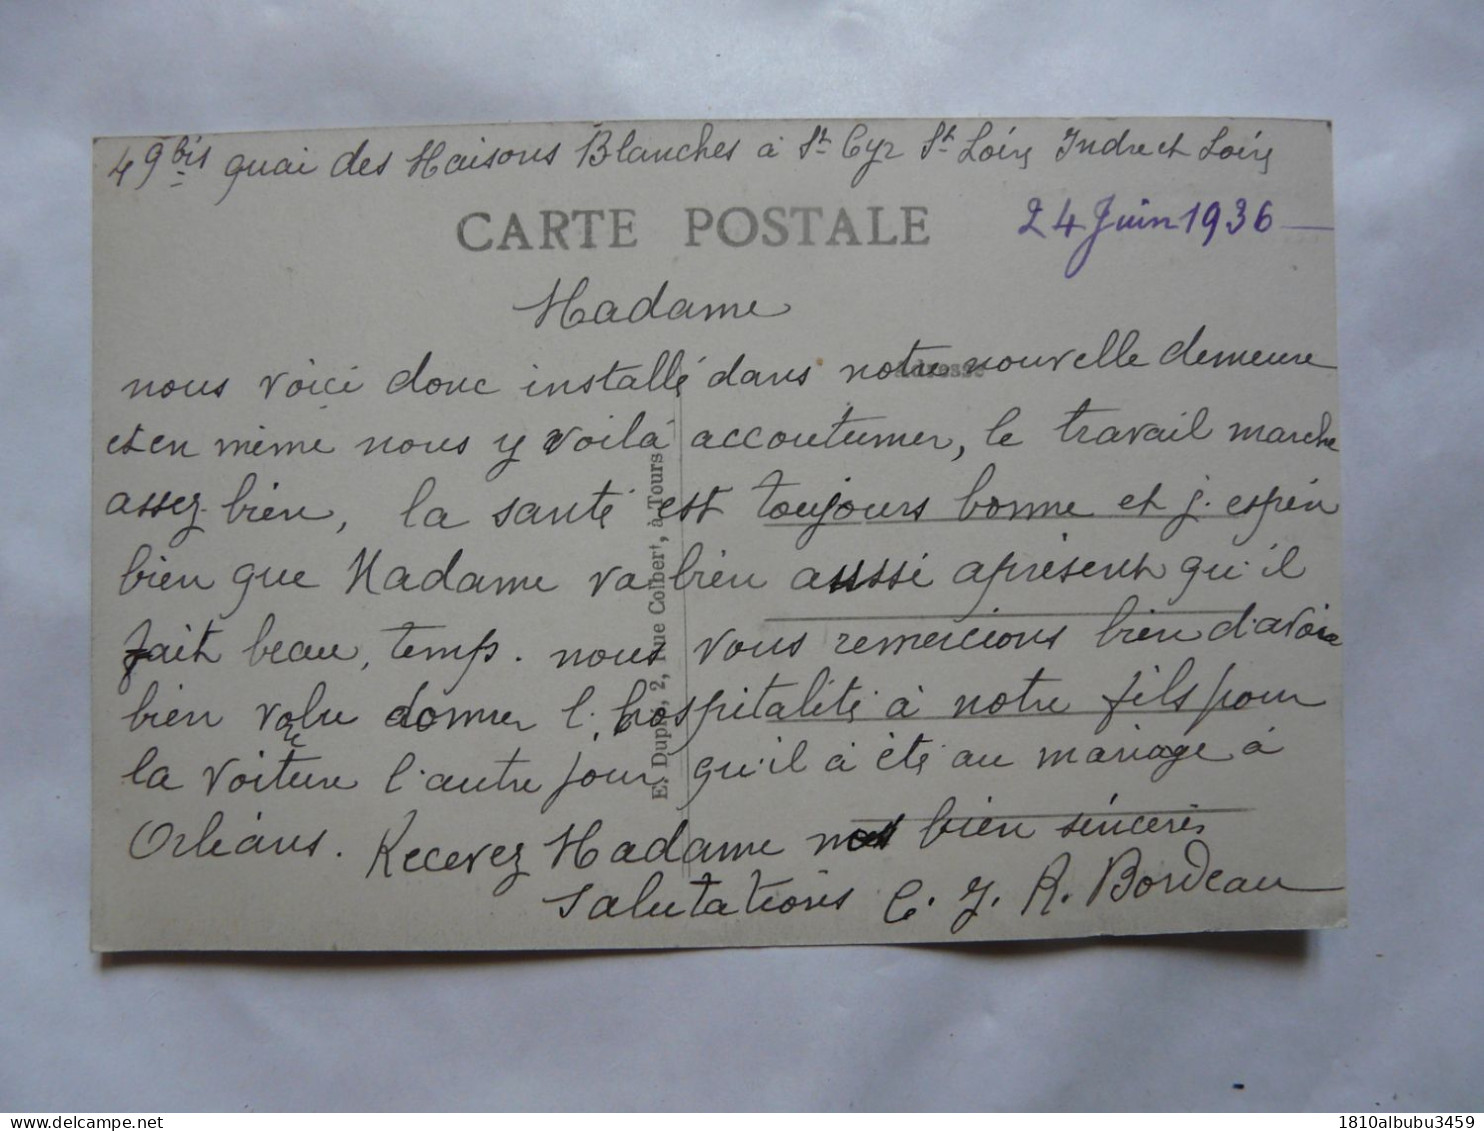 49 bis quai des Maisons Blanches à St Cyr St Loire Indre et Loire
CARTE POSTALE
24 Juin 1936
Madame
Adresse
nous voici donc installé dans notre nouvelle demeure
et en même nous y voilà accoutumer, le travail marche
assez bien, la santé est toujours bonne et j'espère
bien que Madame va bien aussi aprésent qu'il
fait beau, temps. nous vous remercions bien d'avoir
bien volu donner l'hospitalité à notre fils pour
la voiture l'autre jour qu'il à été au mariage à
Orléans. Recevez Madame nos bien sincères
salutations C. J. R. Bordeau
E. Dupré, 2, Rue Colbert, à Tours
1810albubu3459